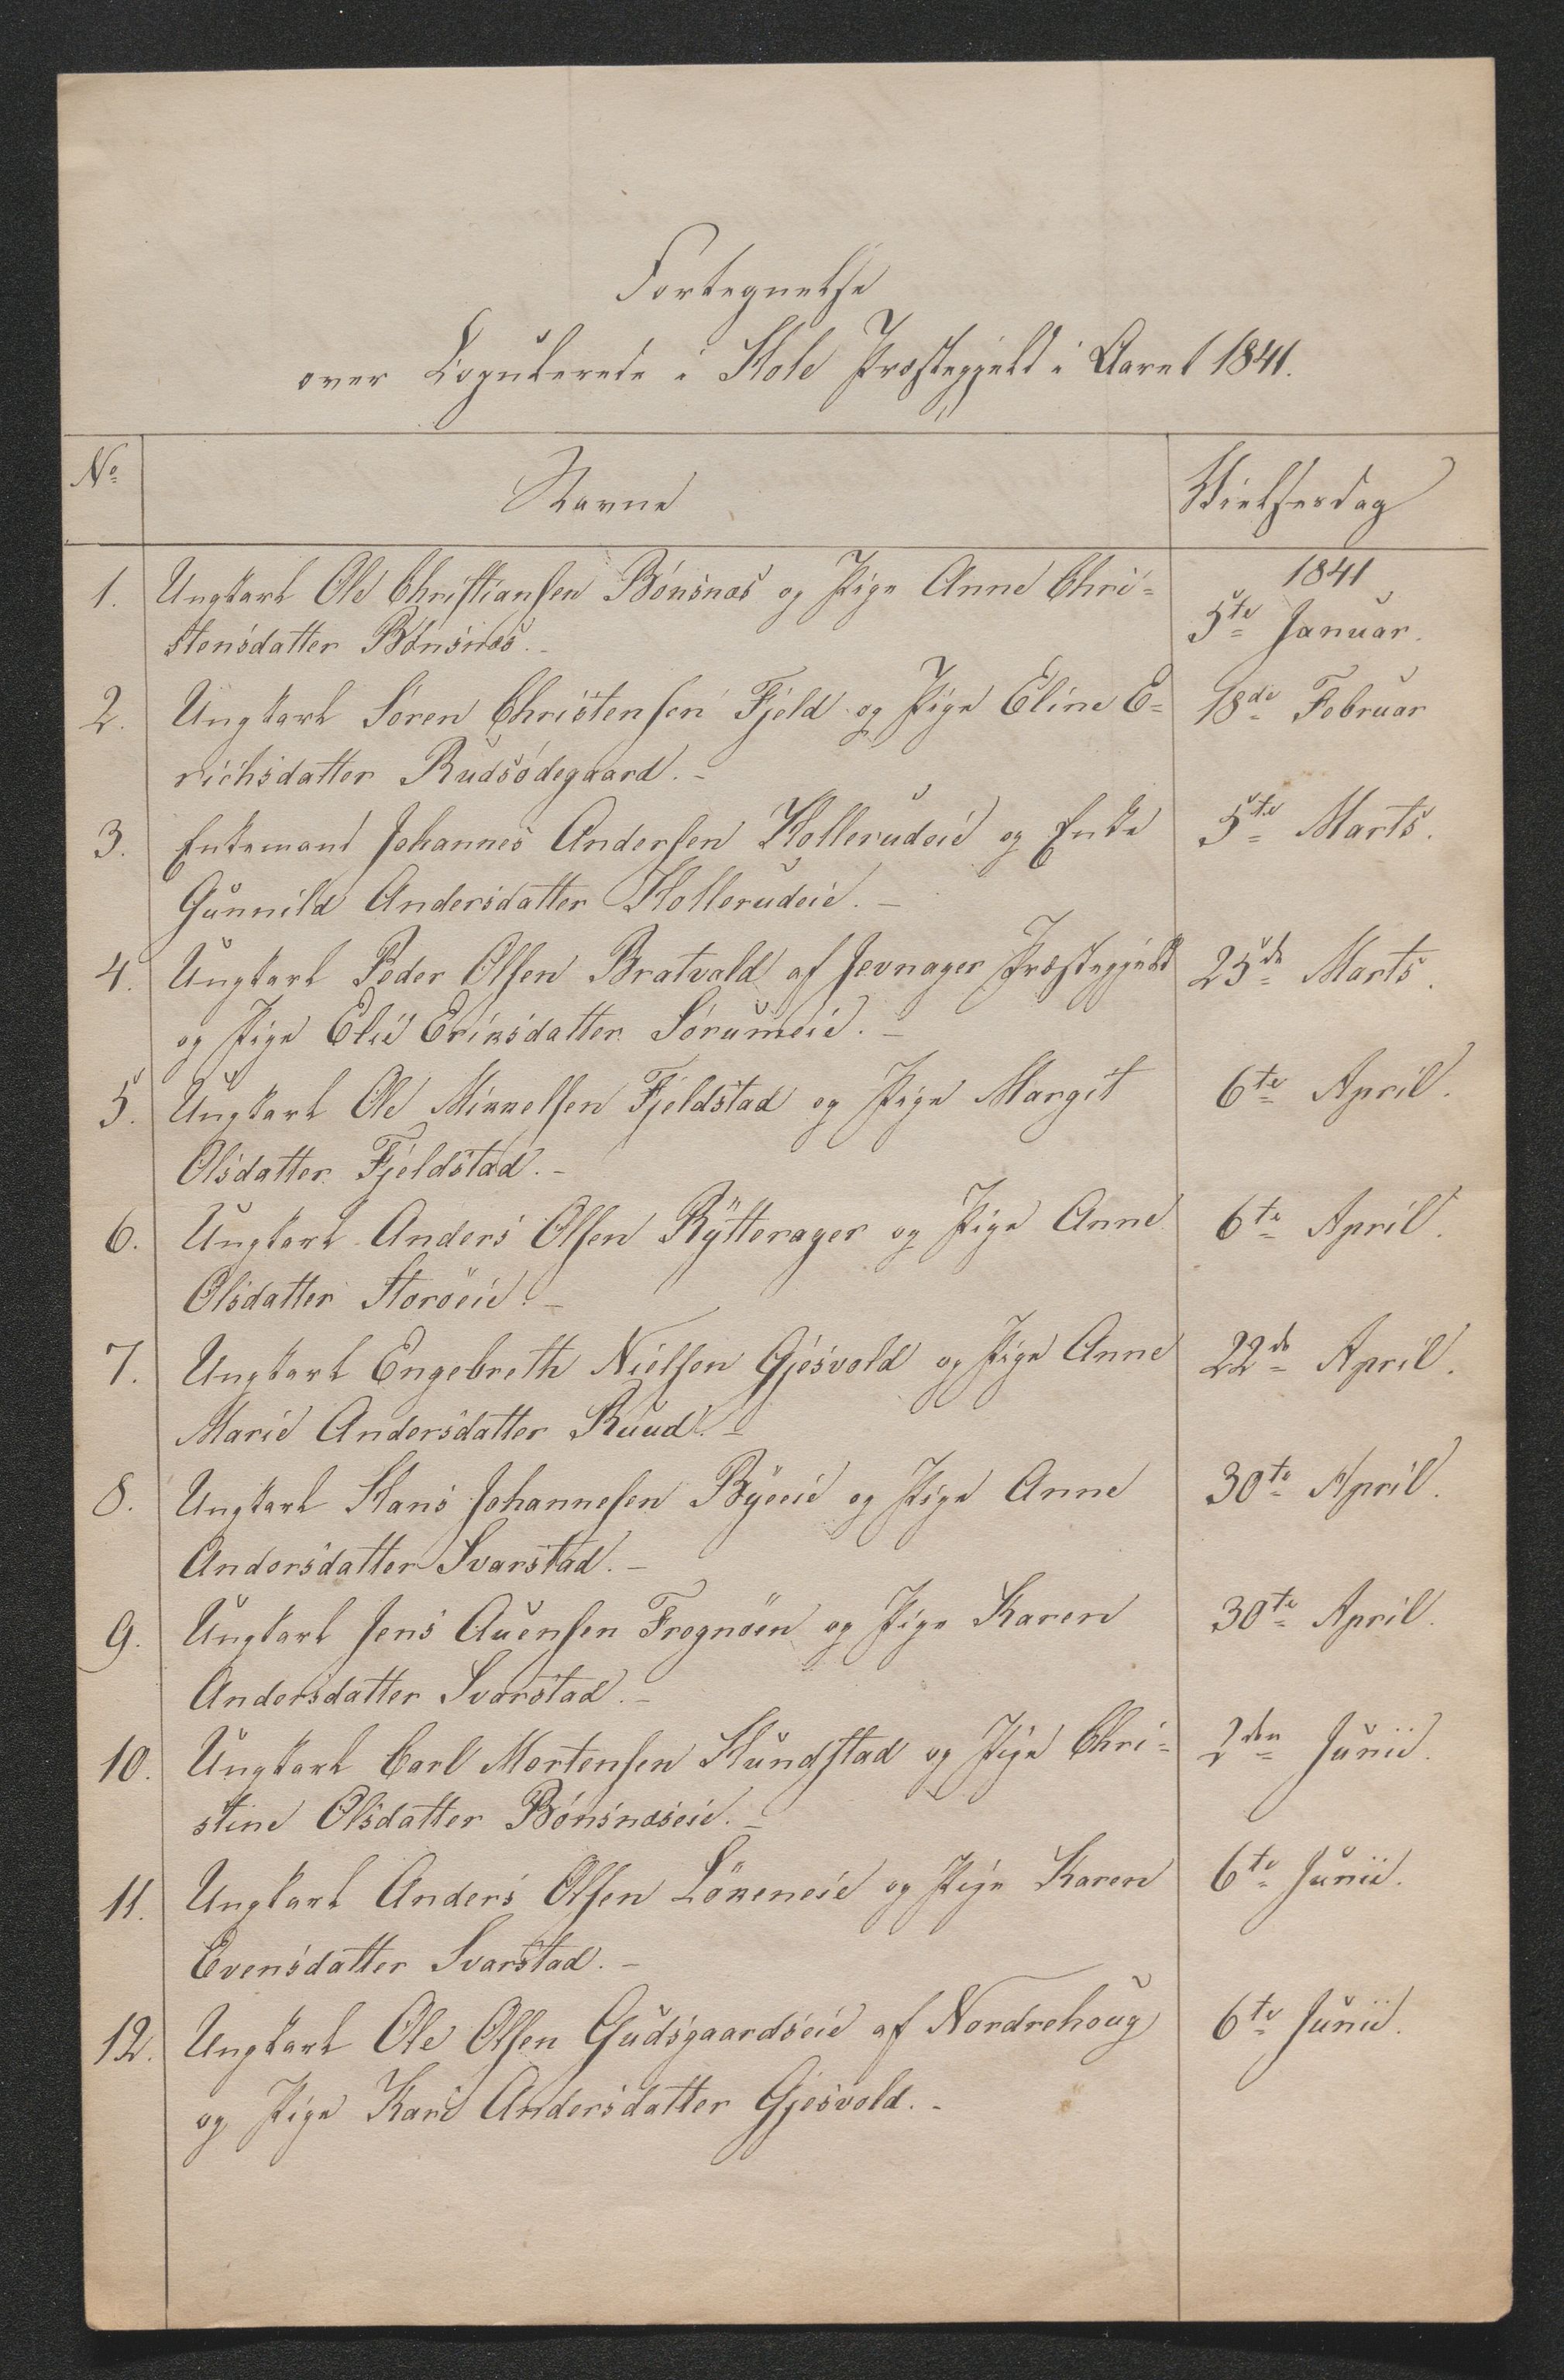 Fortegnelse
over Copulerede i Hole Præstegjeld i Aaret 1841.
No Navne Vielsesdag
1841
1. Ungkarl Ole Christiansen Bönsnæs og Pige Anne Chri= 5te Januar.
stensdatter Bönsnæs.-
2. Ungkarl Sören Christensen Fjeld og Pige Eline E= 18de Februar
richsdatter Rudsödegaard.-
3. Enkemand Johannes Andersen Hollerudeie og Enke 5te Marts.
Gunnild Andersdatter Hollerudeie.-
4. Ungkarl Peder Olsen Bratvald af Jevnager Præstegjeld 25de Marts.
og Pige Elie Eriksdatter Sörumeie.-
5. Ungkarl Ole Mikkelsen Fjeldstad og Pige Margit 6te April.
Olsdatter Fjeldstad.-
6. Ungkarl Anders Olsen Rytterager og Pige Anne 6te April.
Olsdatter Storöeie.-
7. Ungkarl Engebreth Nielsen Gjesvold og Pige Anne 22de April.
Marie Andersdatter Ruud.-
8. Ungkarl Hans Johannesen Byeeie og Pige Anne 30te April.
Andersdatter Svarstad.-
9. Ungkarl Jens Auensen Frognöen og Pige Karen 30te April.
Andersdatter Svarstad.-
10. Ungkarl Carl Mortensen Hundstad og Pige Chri= 2den Junii.
stine Olsdatter Bönsnæseie.-
11. Ungkarl Anders Olsen Lökeneie og Pige Karen 6te Junii.
Evensdatter Svarstad.-
12. Ungkarl Ole Olsen Gudsgaardseie af Nordrehoug 6te Junii.
og Pige Kari Andersdatter Gjesvold.-